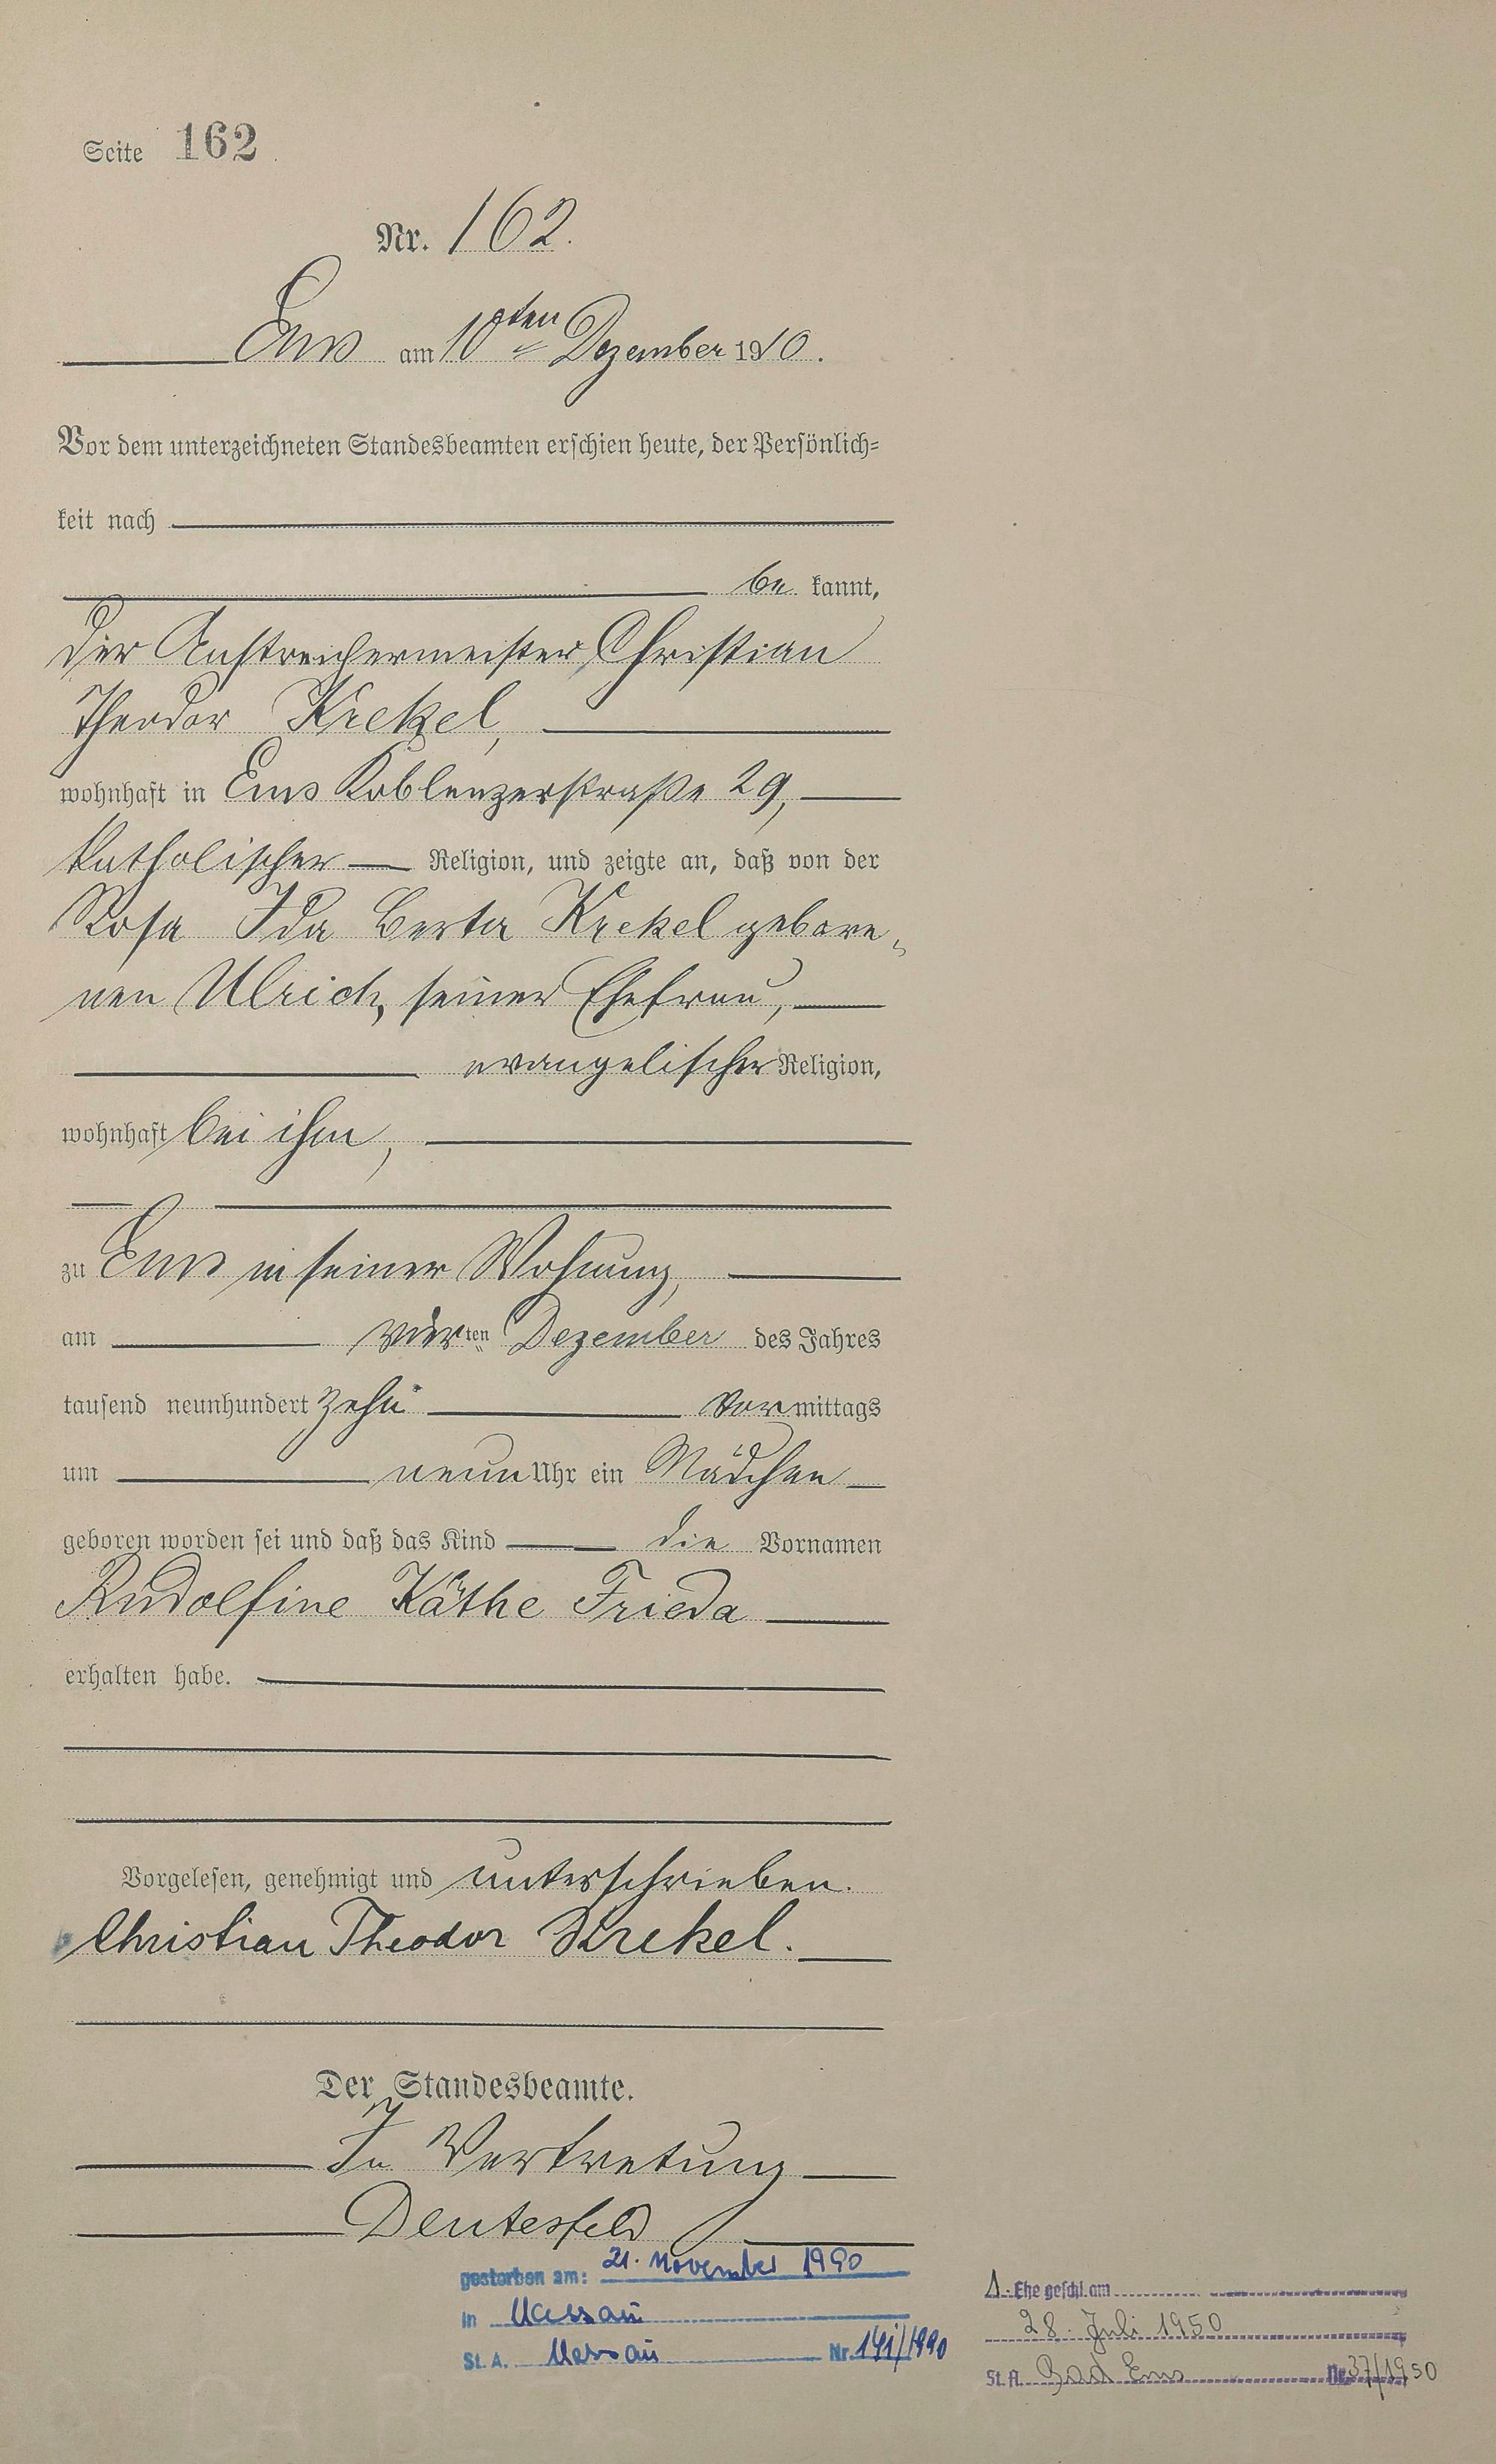 Seite 162
Nr. 162.
Ems am 10ten Dezember 1910.
Vor dem unterzeichneten Standesbeamten erschien heute, der Persönlich=
keit nach
be kannt,
der Anstreichermeister Christian
Theodor Krekel,
wohnhaft in Ems Koblenzerstraße 29,
katholischer Religion, und zeigte an, daß von der
Rosa Ida Berta Krekel gebore„
nen Ulrich, seiner Ehefrau,
evangelischer Religion,
wohnhaft bei ihm,
zu Ems in seiner Wohnung,
am vierten Dezember des Jahres
tausend neunhundert zehn Vormittags
um neun Uhr ein Mädchen
geboren worden sei und daß das Kind die Vornamen
Rudolfine Käthe Frieda
erhalten habe.
Vorgelesen, genehmigt und unterschrieben.
Christian Theodor Krekel.
Der Standesbeamte.
In Vertretung
Deutesfeld
gestorben am: 21. November 1990
in Nassau
St. A. Nassau Nr. 141/1990
1. Ehe geschl. am
28. Juli 1950
St. A. Bad Ems Nr. 37/1950